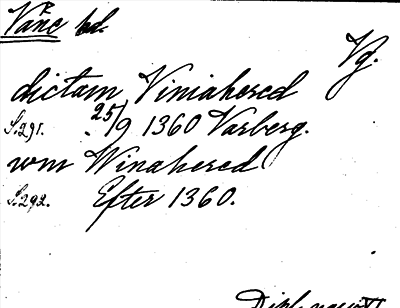 Väne hd.
Vg.
dictam Viniahered
S.291. 25/9 1360 Varberg.
wm Winahered
S.292. Efter 1360.